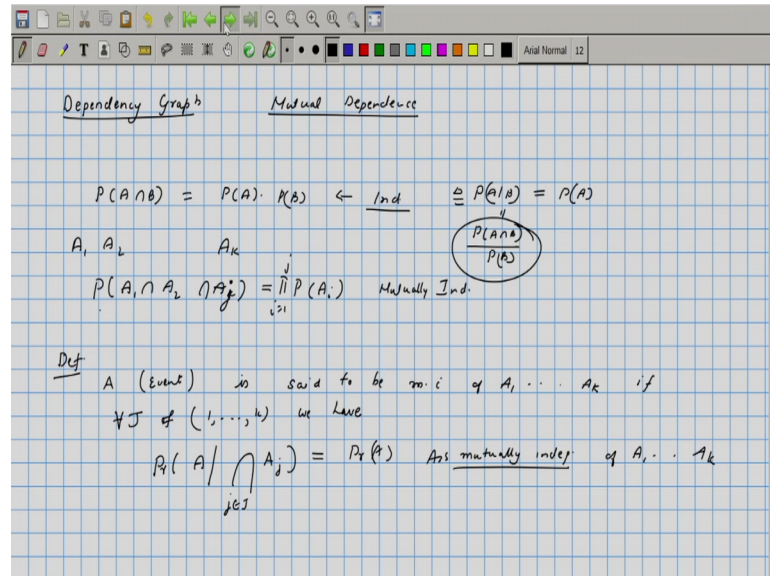 T Arial Normal 12
Dependency Graph Mutual Dependence
P(A∩B) = P(A). P(B) ← Ind ≜ P(A|B) = P(A)
P(A∩B)
P(B)
A₁ A₂ Aₖ
j
P(A₁∩A₂ ∩Aⱼ) = Π P(Aᵢ) Mutually Ind.
i=1
Def
A (Event) is said to be m.i of A₁ . . . Aₖ if
∀J of (1,...,k) we have
Pr(A/⋂Aⱼ) = Pr(A) A is mutually indep. of A₁ . . Aₖ
j∈J